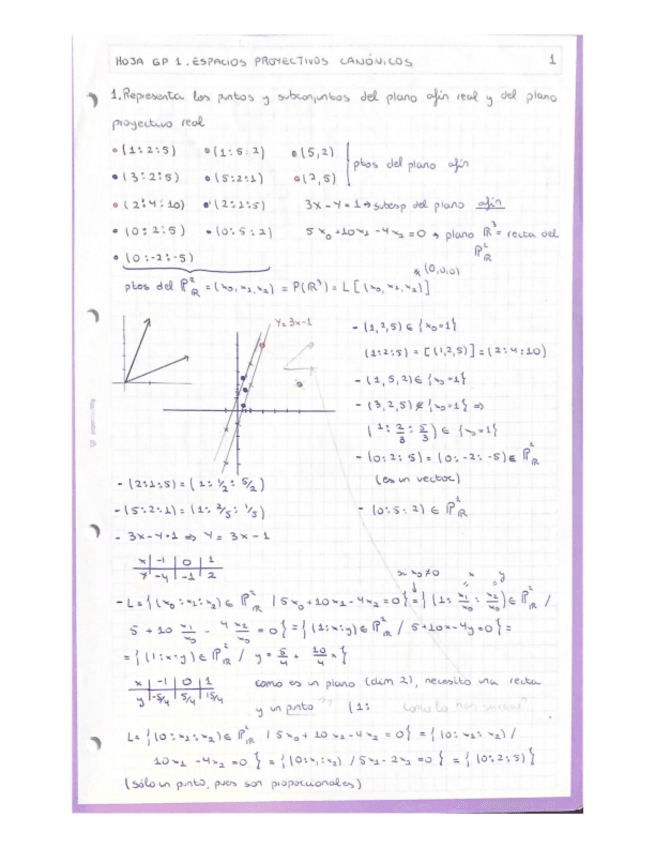 HOJA GP 1. ESPACIOS PROYECTIVOS CANÓNICOS 1
1. Representa los puntos y subconjuntos del plano afín real y del plano
proyectivo real
• (1:2:5) • (1:5:2) • (5,2)
ptos del plano afín
• (3:2:5) • (5:2:1) • (2,5)
• (2:4:10) • (2:1:5) 3x-y=1 → subesp del plano afín
• (0:2:5) • (0:5:2) 5x₀+10x₁-4x₂=0 → plano ℝ³ = recta del
ℙ²ℝ
• (0:-2:-5)
(0,0,0)
ptos del ℙ²ℝ = (x₀,x₁,x₂) = P(ℝ³) = L[(x₀,x₁,x₂)]
y=3x-1
- (1,2,5) ∈ {x₀=1}
(1:2:5) = [(1,2,5)] = (2:4:10)
- (1,5,2) ∈ {x₀=1}
- (3,2,5) ∉ {x₀=1} ⇒
(1: 2/3 : 5/3) ∈ {x₀=1}
- (0:2:5) = (0:-2:-5) ∈ ℙ²ℝ
(es un vector)
- (0:5:2) ∈ ℙ²ℝ
- (2:1:5) = (1: 1/2 : 5/2)
- (5:2:1) = (1: 2/5 : 1/5)
- 3x-y=1 ⇒ y = 3x-1
x | -1 | 0 | 1
y | -4 | -1 | 2
si x₀≠0 x y
- L = {(x₀:x₁:x₂) ∈ ℙ²ℝ / 5x₀+10x₁-4x₂=0} = {(1: x₁/x₀ : x₂/x₀) ∈ ℙ²ℝ /
5 + 10 x₁/x₀ - 4 x₂/x₀ = 0} = {(1:x:y) ∈ ℙ²ℝ / 5+10x-4y=0} =
= {(1:x:y) ∈ ℙ²ℝ / y = 5/4 + 10/4 x}
x | -1 | 0 | 1
y | -5/4 | 5/4 | 15/4
como es un plano (dim 2), necesito una recta
y un punto ?? (1:
L = {(0:x₁:x₂) ∈ ℙ²ℝ / 5x₀+10x₁-4x₂=0} = {(0:x₁:x₂) /
10x₁-4x₂=0} = {(0:x₁:x₂) / 5x₁-2x₂=0} = {(0:2:5)}
(sólo un punto, pues son proporcionales)